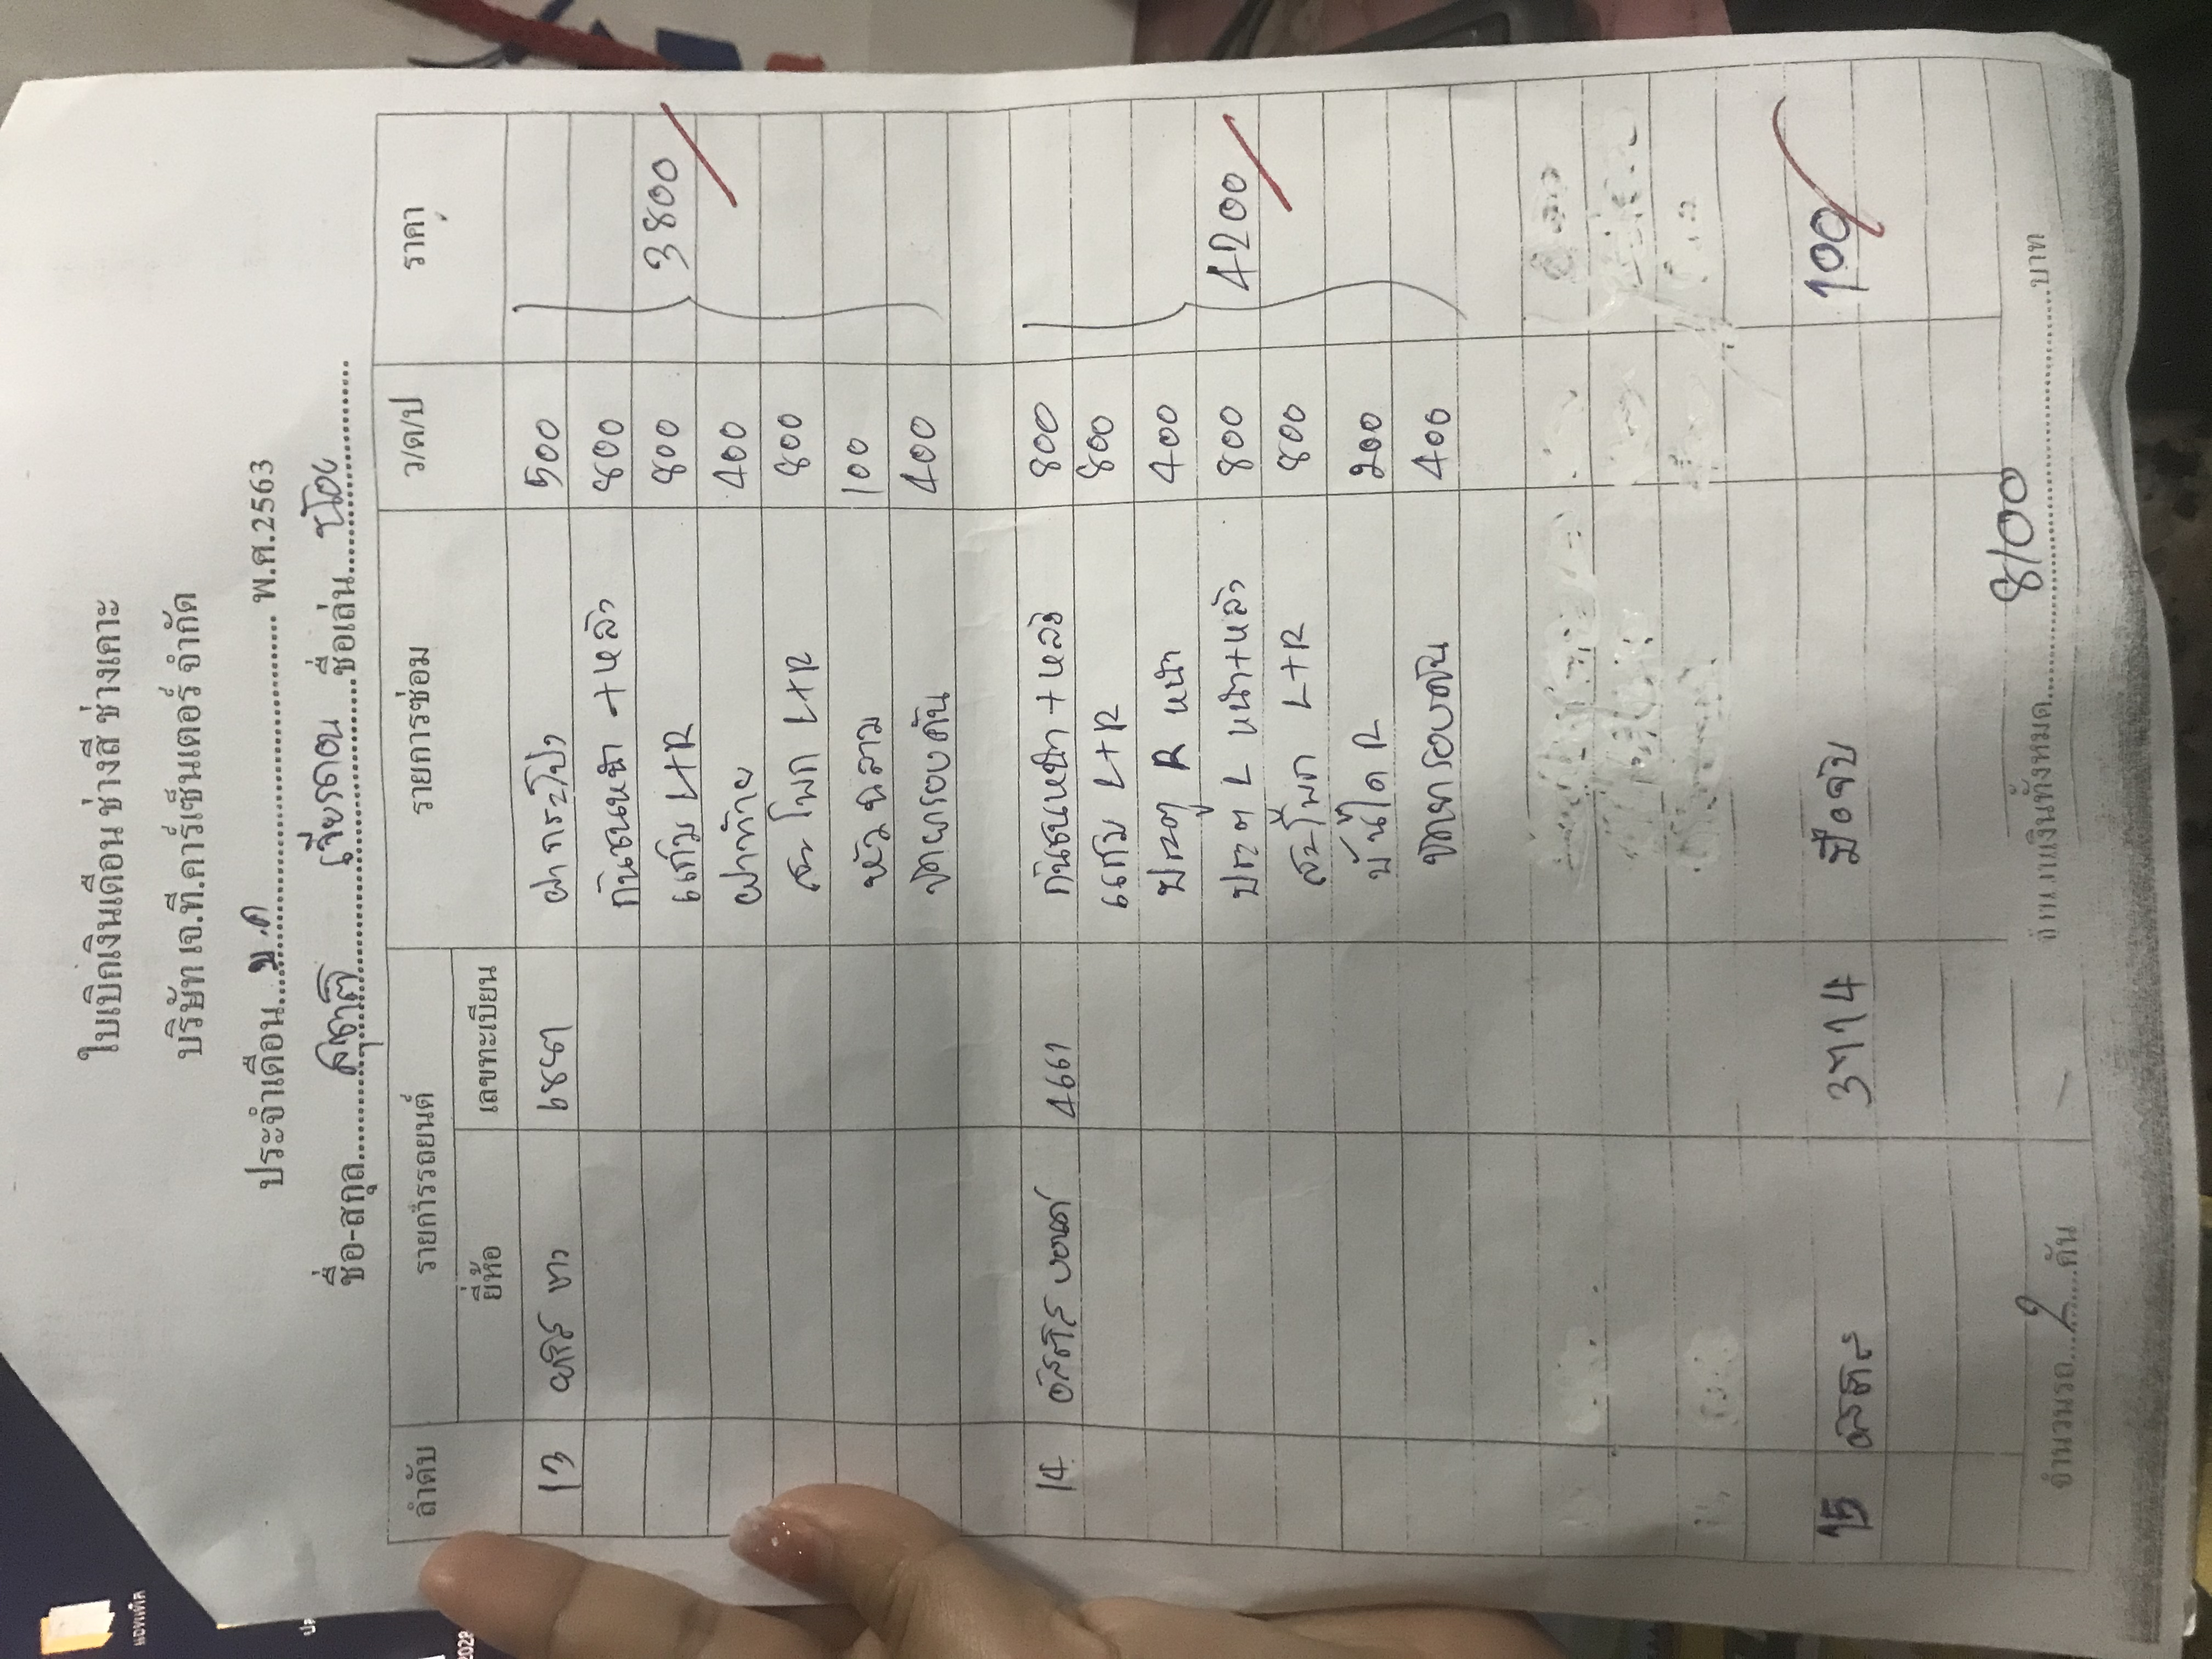 ใบเบิกเงินเดือน ช่างสี ช่างเคาะ
บริษัท เจ.ที.คาร์เซ็นเตอร์ จำกัด
ประจำเดือน....ม.ค.... พ.ศ.2563
ชื่อ-สกุล.... ....ชื่อเล่น....
ลำดับ รายการรถยนต์ รายการซ่อม ว/ด/ป ราคา
ยี่ห้อ เลขทะเบียน
13 ฝากระโปรง 500
กันชนหน้า + หลัง 800
แก้ม L+R 800 3800
ฝาท้าย 400
สะโพก L+R 800
หัวฉลาม 100
ขัดยารอบคัน 400
14 4667 กันชนหน้า + หลัง 800
แก้ม L+R 800
ประตู R หน้า 400
ประตู L หน้า+หลัง 800 4200
สะโพก L+R 800
บันได R 200
ขัดยารอบคัน 400
15 3714 มือจับ 100
จำนวนรถ....2....คัน จำนวนเงินทั้งหมด....8100....บาท
แอพเพิ่ล